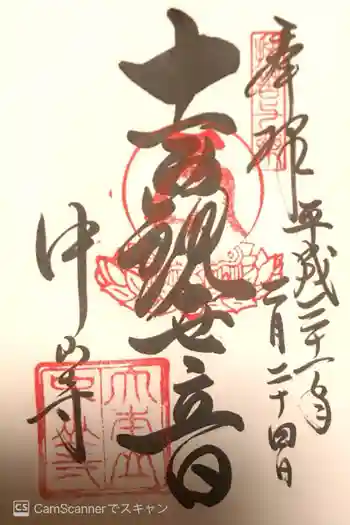 奉拝
平成二十一年
二月二十四日
十一面観世音
中山寺
CS CamScannerでスキャン